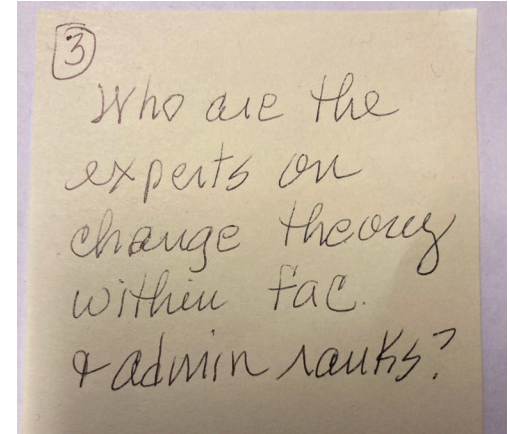 3
Who are the
experts on
change theory
within fac.
& admin ranks?